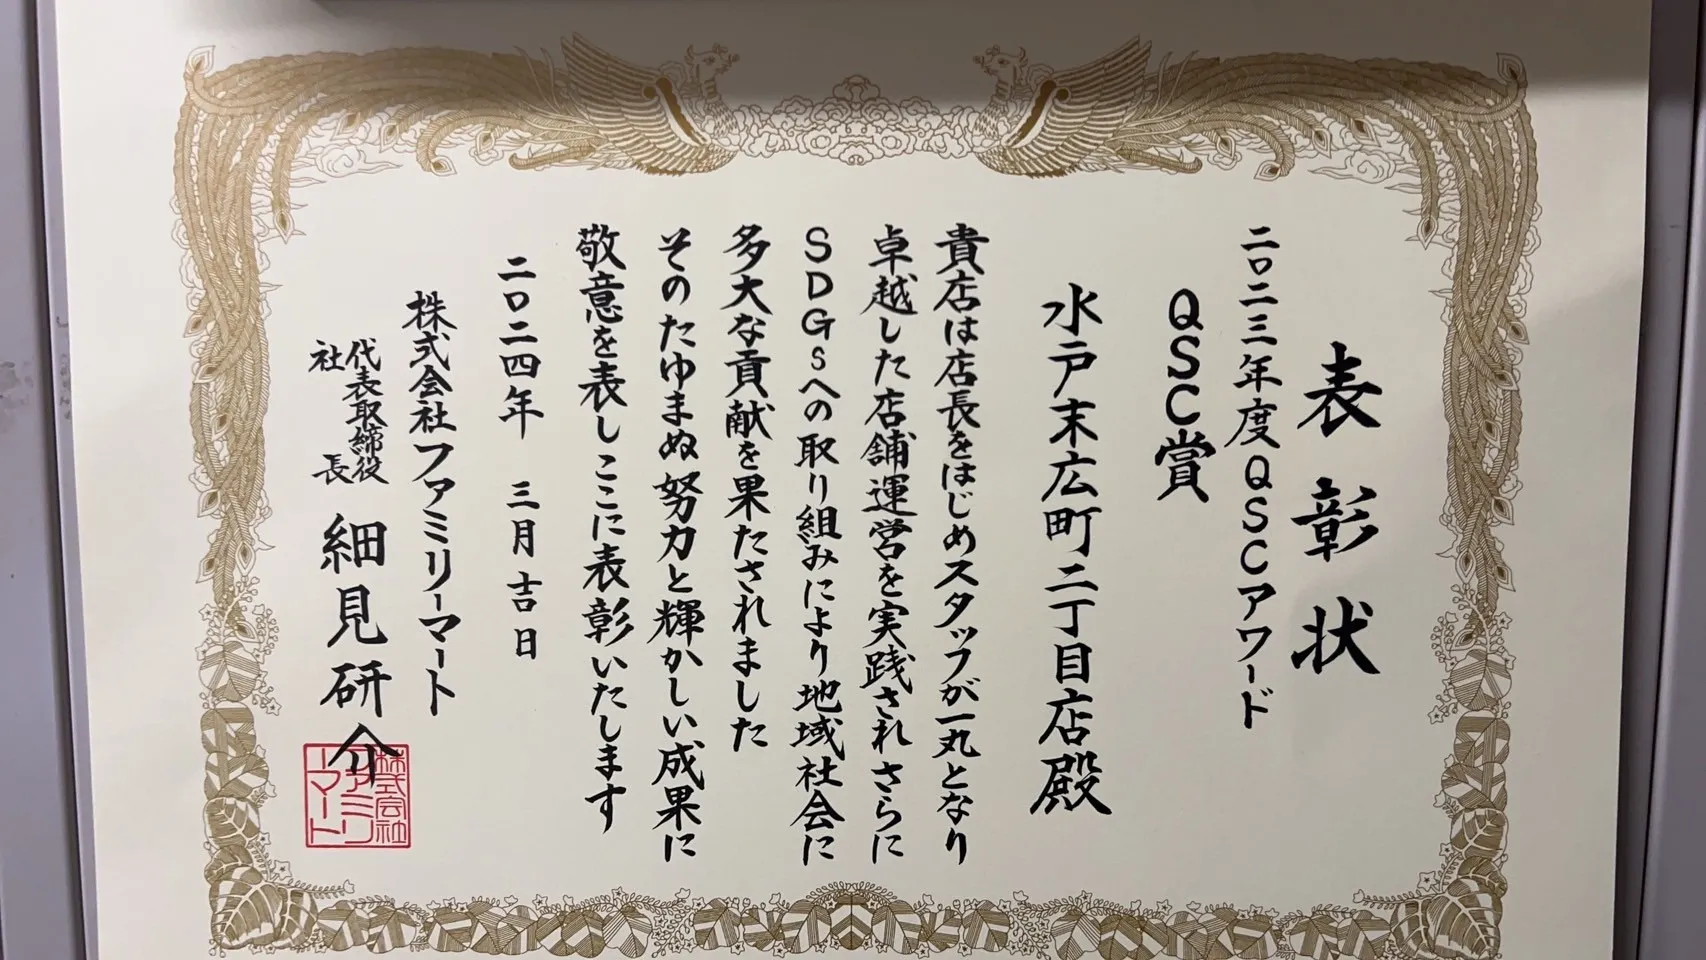 表彰状
二〇二三年度QSCアワード
QSC賞
水戸末広町二丁目店殿
貴店は店長をはじめスタッフが一丸となり
卓越した店舗運営を実践されさらに
SDGsへの取り組みにより地域社会に
多大な貢献を果たされました
そのたゆまぬ努力と輝かしい成果に
敬意を表しここに表彰いたします
二〇二四年 三月吉日
株式会社ファミリーマート
代表取締役
社長
細見研介
株式会社
ファミリ
ーマート